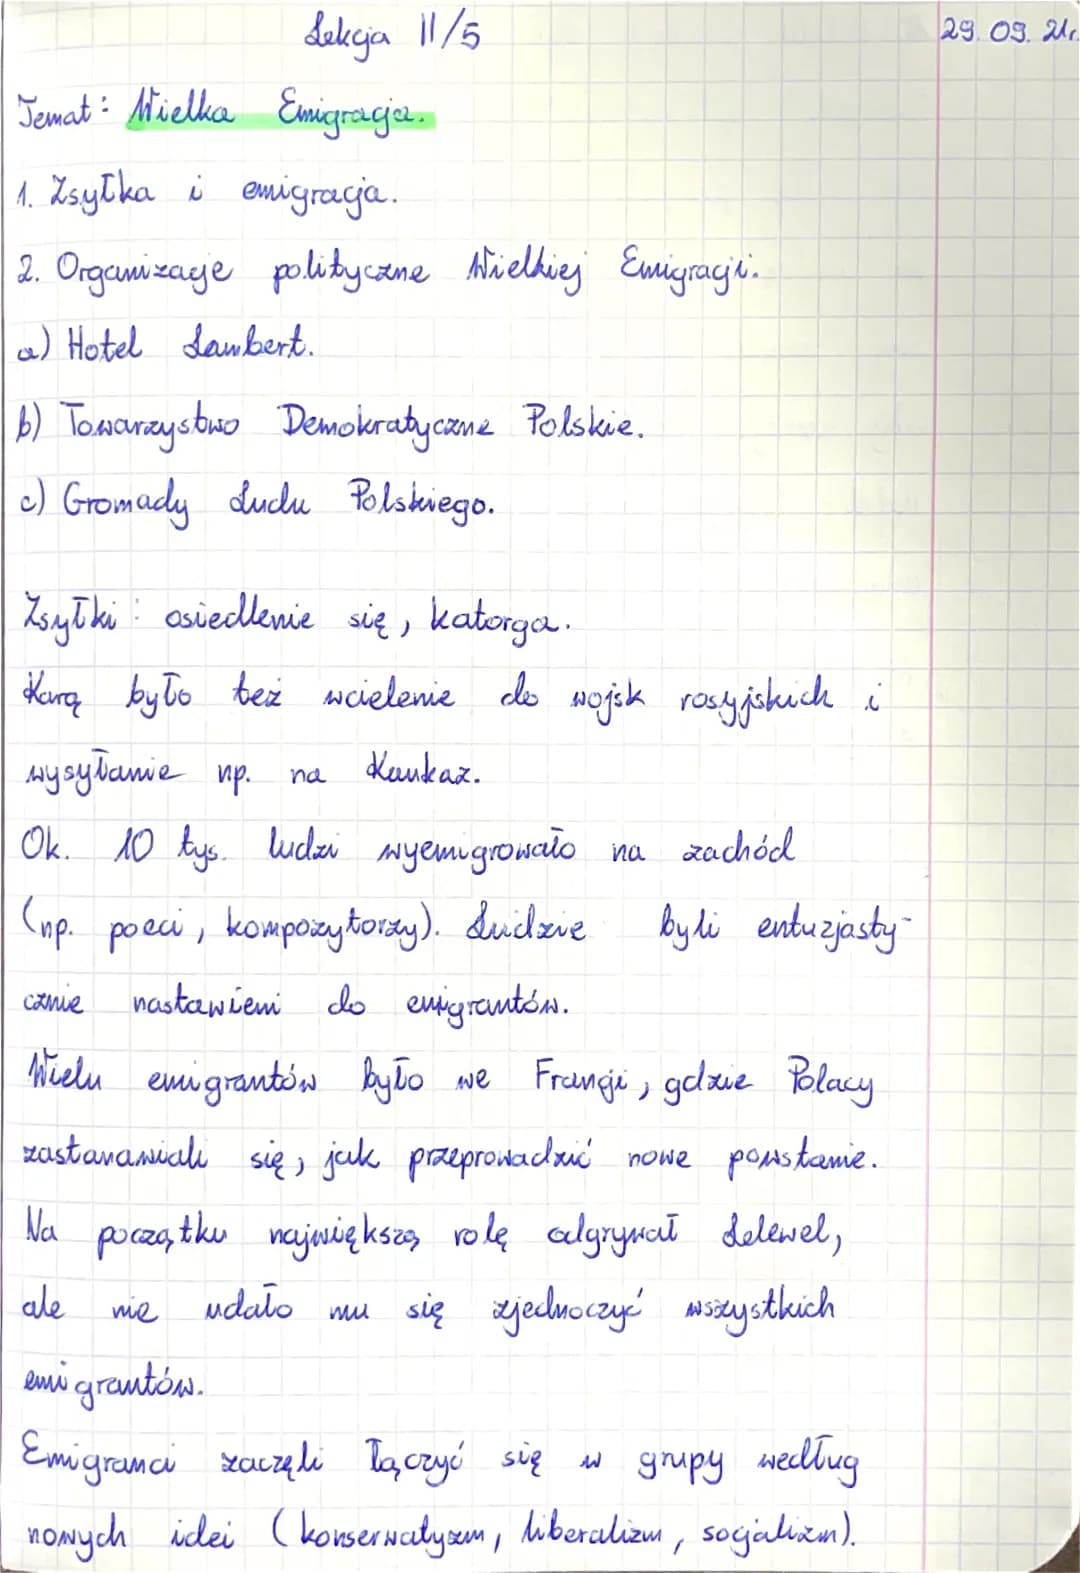 Lekcja 11/5
29. 09. 21r.
Temat: Wielka Emigracja.
1. Zsyłka i emigracja.
2. Organizacje polityczne Wielkiej Emigracji.
a) Hotel Lambert.
b) Towarzystwo Demokratyczne Polskie.
c) Gromady Ludu Polskiego.
Zsyłki: osiedlenie się, katorga.
Karą było też wcielenie do wojsk rosyjskich i
wysyłanie np. na Kaukaz.
Ok. 10 tys. ludzi wyemigrowało na zachód
(np. poeci, kompozytorzy). Ludzie byli entuzjasty-
cznie nastawieni do emigrantów.
Wielu emigrantów było we Francji, gdzie Polacy
zastanawiali się, jak przeprowadzić nowe powstanie.
Na początku największą rolę odgrywał Lelewel,
ale nie udało mu się zjednoczyć wszystkich
emigrantów.
Emigranci zaczęli łączyć się w grupy według
nowych idei (konserwatyzm, liberalizm, socjalizm).